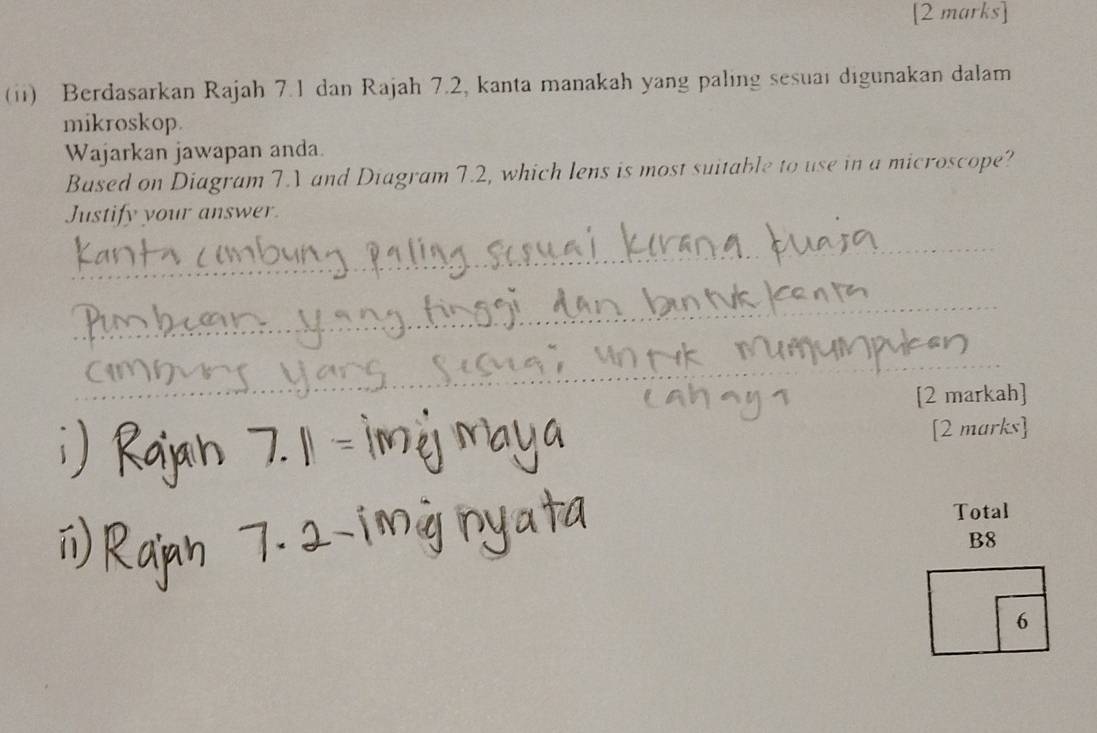 [2 marks]
(ii) Berdasarkan Rajah 7.1 dan Rajah 7.2, kanta manakah yang paling sesuai digunakan dalam
mikroskop.
Wajarkan jawapan anda.
Based on Diagram 7.1 and Diagram 7.2, which lens is most suitable to use in a microscope?
Justify your answer.
Kanta cembung paling sesuai kerana kuasa
Pembesaran yang tinggi dan bentuk kanta
cembung yang sesuai untuk menumpukan
cahaya
[2 markah]
[2 marks]
i) Rajah 7.11 = imej maya
ii) Rajah 7.2 - imej nyata
Total
B8
6